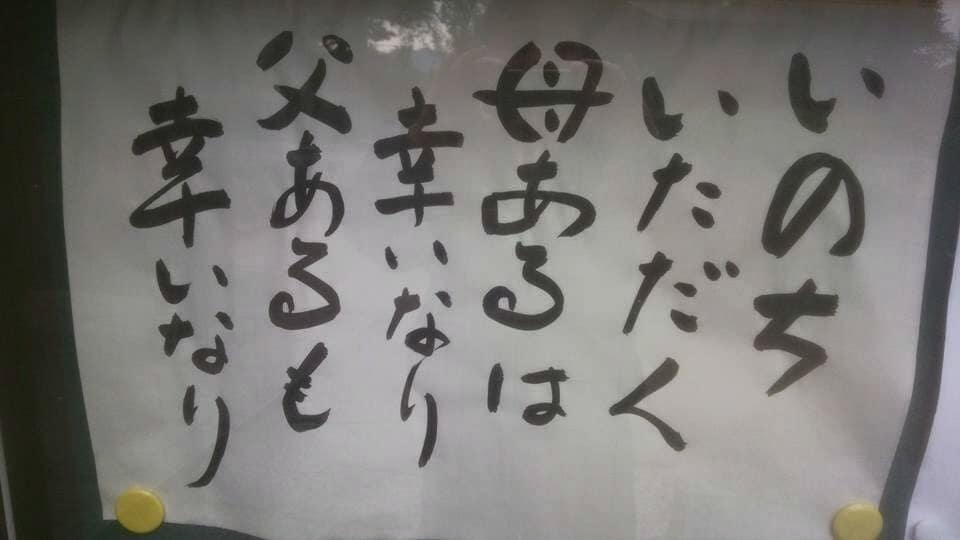 いのち
いただく
母あるは
幸いなり
父あるも
幸いなり